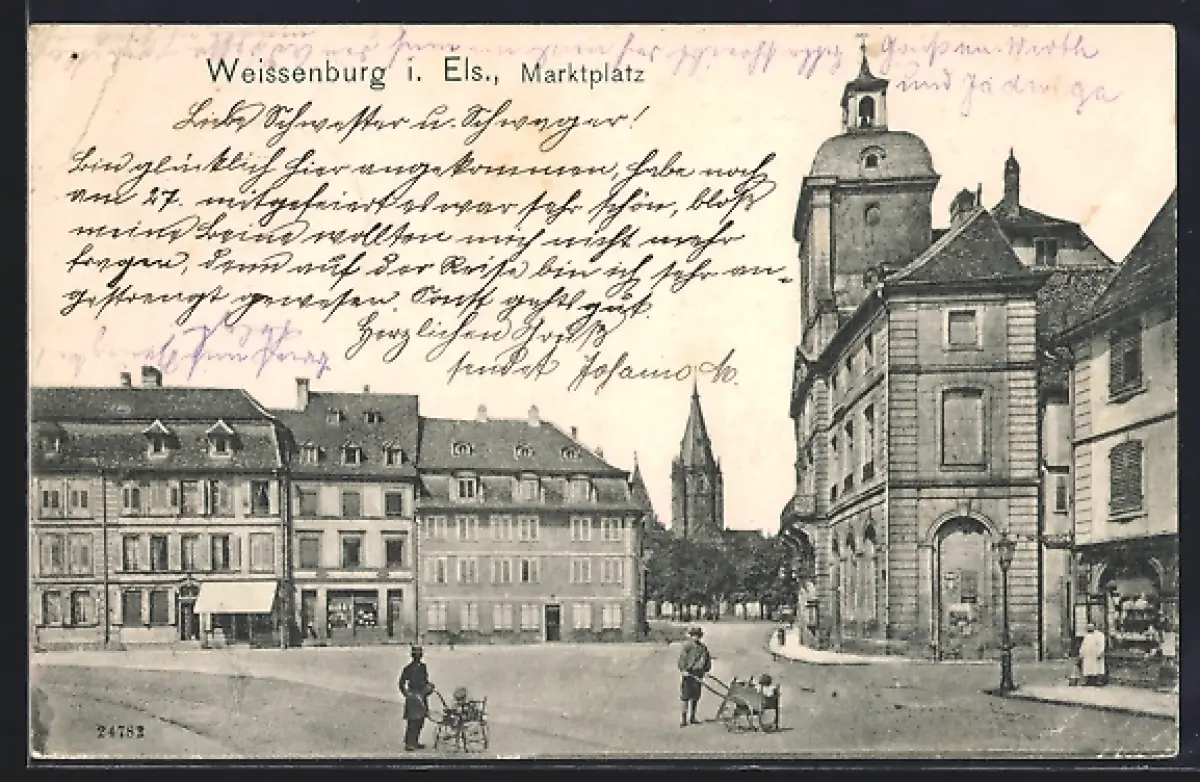 Grüßen Wirth
und Jadwiga
Weissenburg i. Els., Marktplatz
Liebe Schwester u. Schwager!
Bin glücklich hier angekommen, habe noch
am 27. mitgefeiert es war sehr schön, bloß
meine Beine wollten mich nicht mehr
tragen, denn auf der Reise bin ich sehr an-
gestrengt gewesen. Sonst gehts gut.
Herzlichen Gruß
sendet
24782